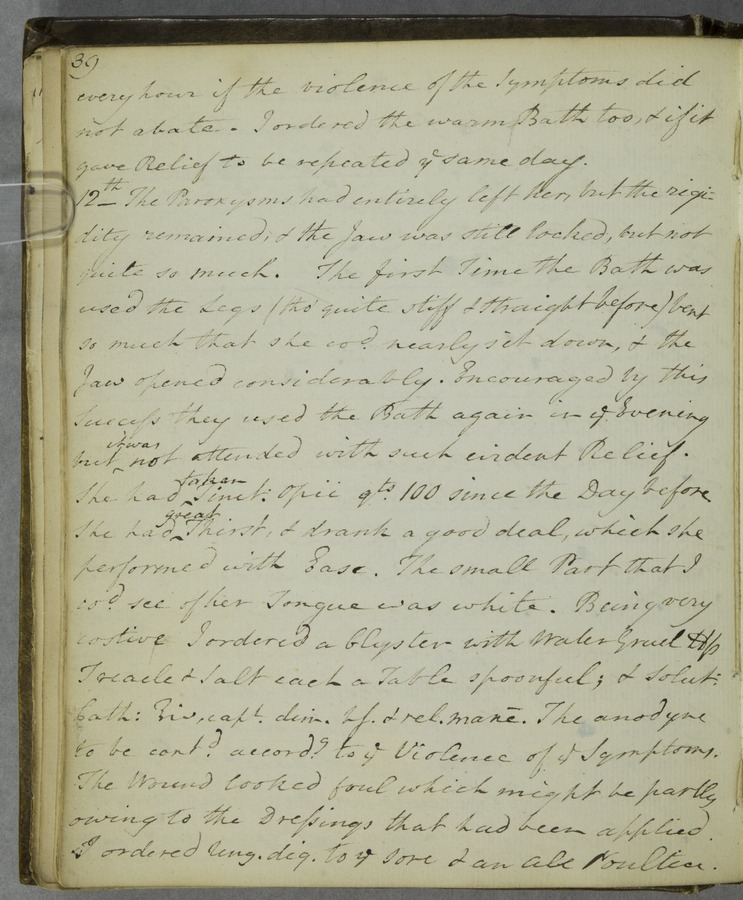 39
every hour if the violence of the Symptoms did
not abate. I ordered the warm Bath too, & if it
gave Relief to be repeated ye same day.
12th The Paroxysms had entirely left her, but the rigi-
dity remained; & the Jaw was still locked, but not
quite so much. The first Time the Bath was
used the Legs (tho' quite stiff & straight before) bent
so much that she cod. nearly sit down, & the
Jaw opened considerably. Encouraged by this
Success they used the Bath again in ye Evening
but it was not attended with such evident Relief.
She had taken Tinct: Opii gts. 100 since the Day before
She had great Thirst, & drank a good deal, which she
performed with Ease. The small Part that I
cod. see of her Tongue was white. Being very
costive I ordered a Clyster with Water Gruel
Treacle & Salt each a Table spoonful; & Solut:
Cath: ℥iv, capt. dim. h.f. & rel. mane. The anodyne
to be contd. accordg. to ye Violence of ye Symptoms.
The Wound looked foul which might be partly
owing to the Dressings that had been applied.
I ordered Ung. dig. to ye sore & an Ale Poultice.